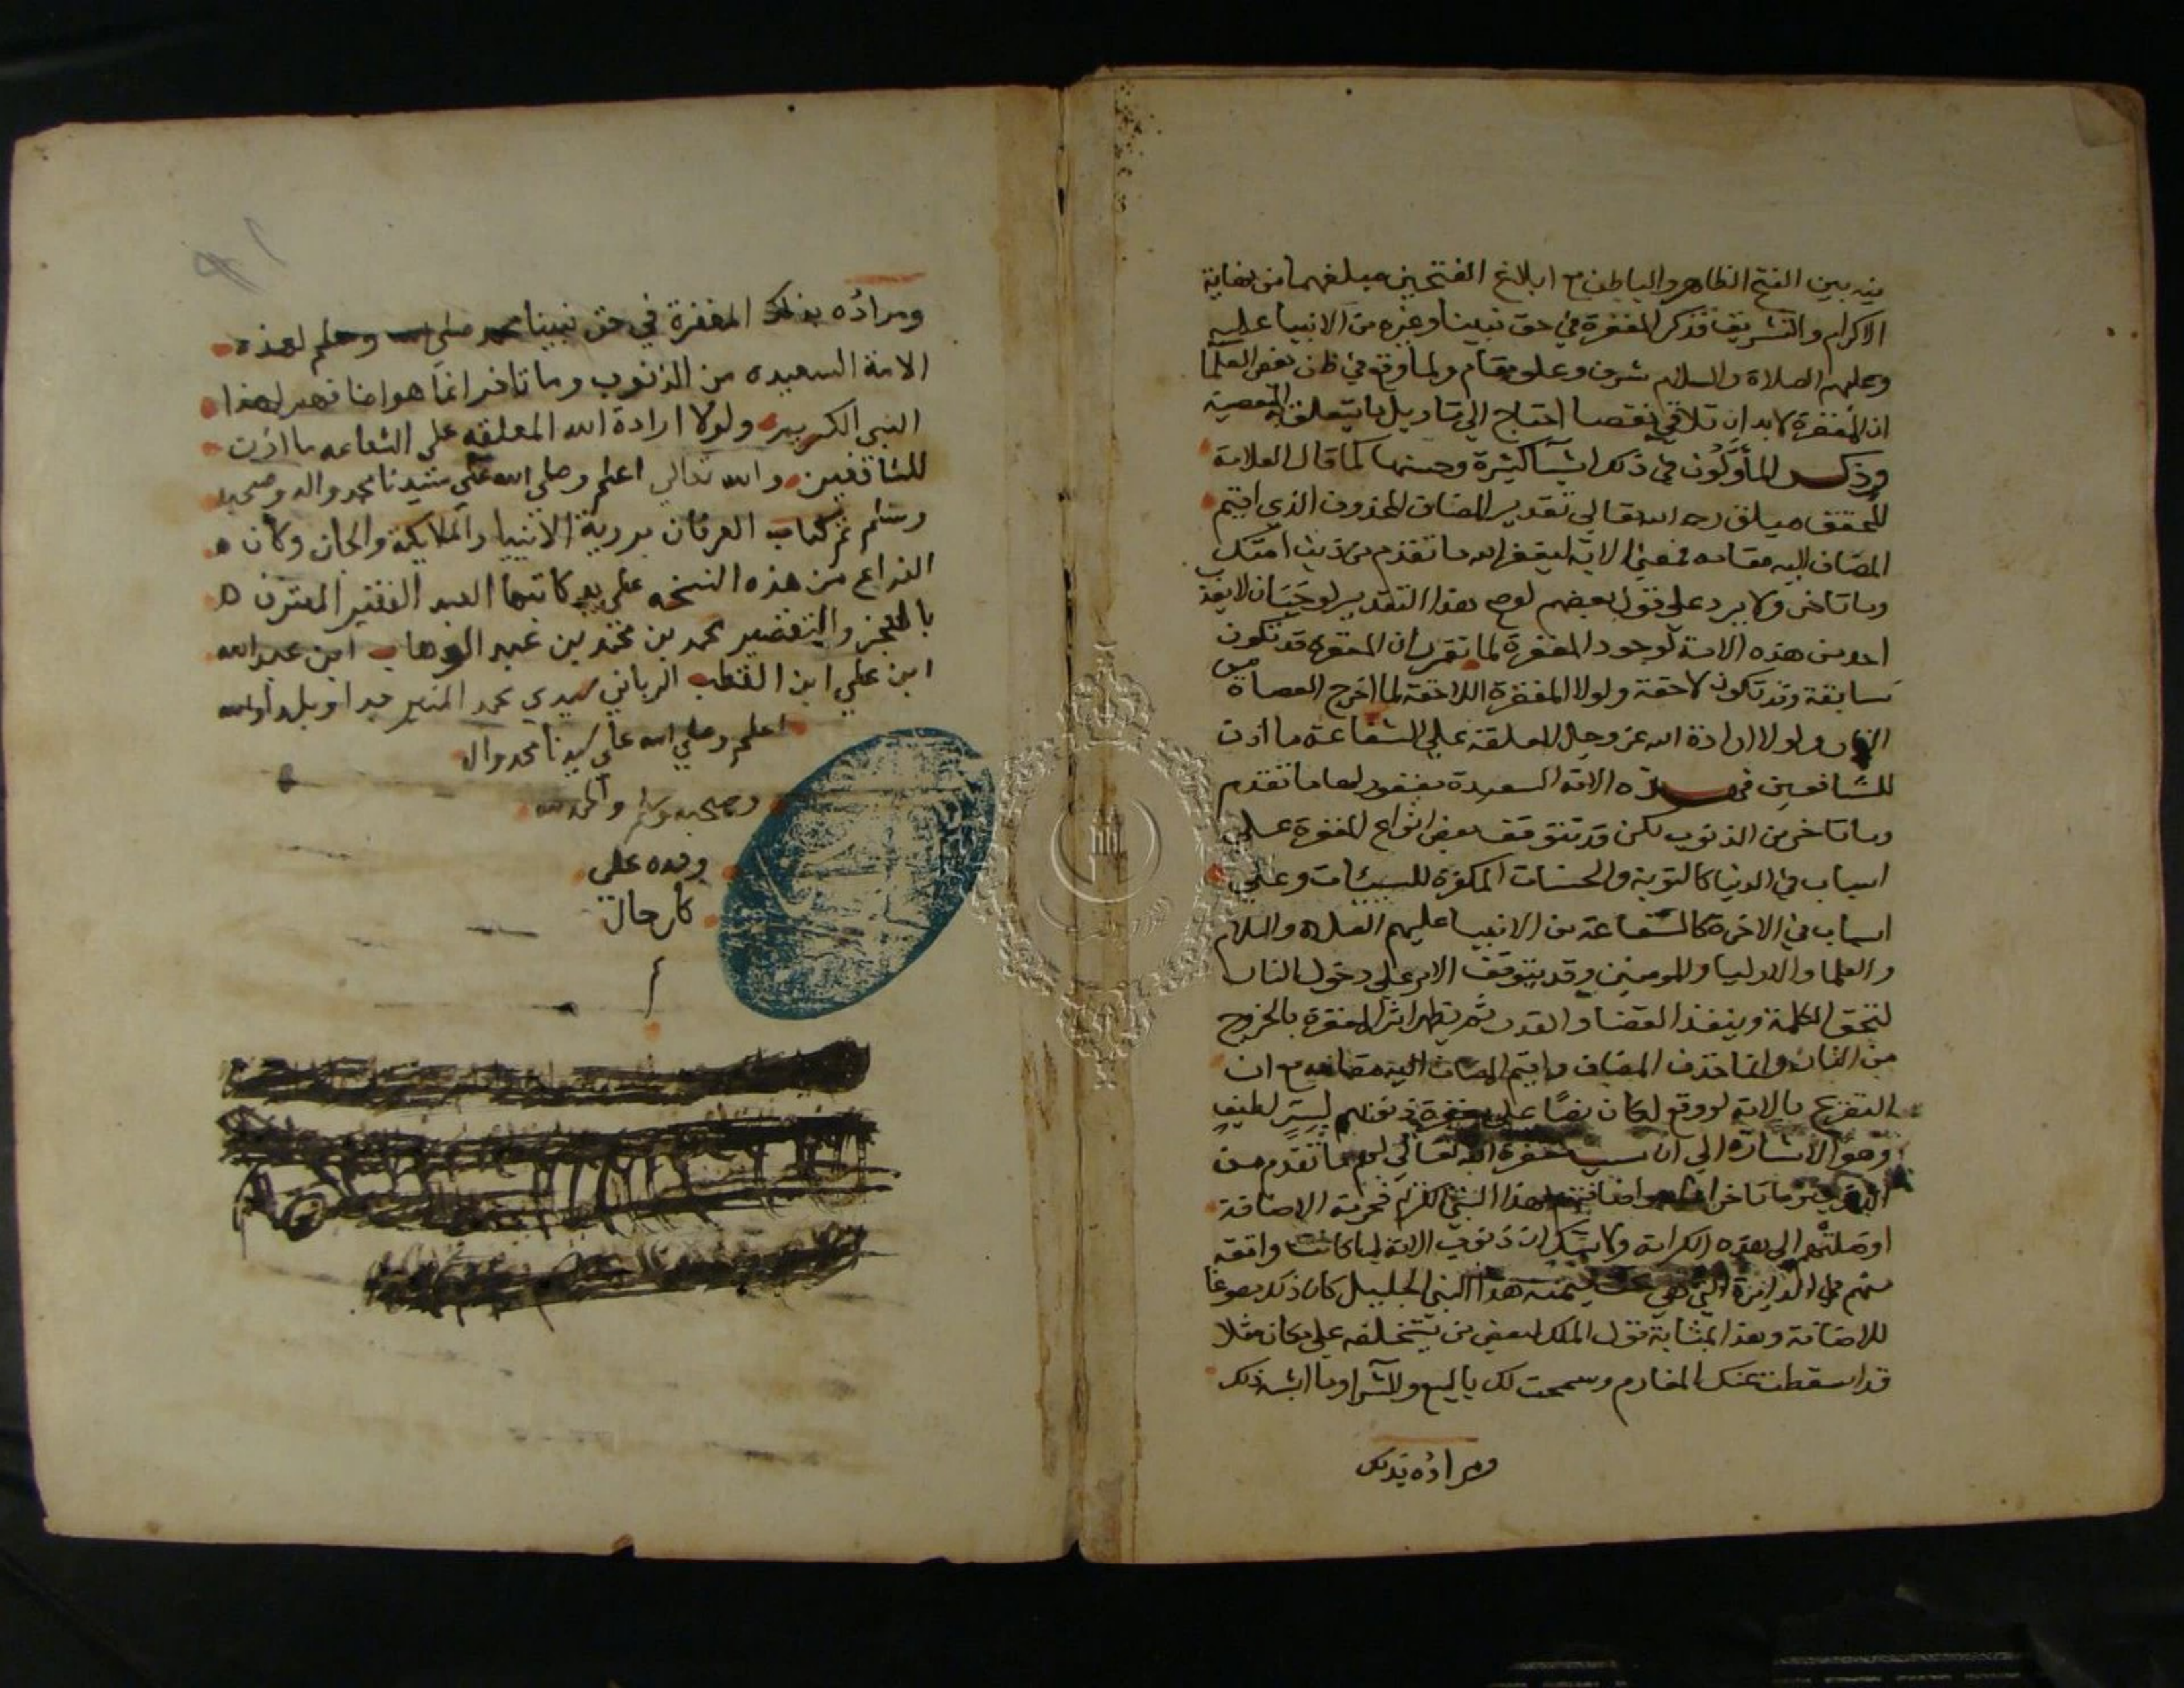 فيه بين الفتح الظاهر والباطن مع ابلاغ الفتحين مبلغهما من نهاية
الاكرام والتشريف فذكر المغفرة في حق نبينا وغيره من الانبيا عليه
وعليهم الصلاة والسلام شرف وعلو مقام ولما وقع في ظن بعض العلما
ان المغفرة لا بد ان تلاقي نقصا احتاج الي تاويل ما يتعلق المعصية
وذكر المأولون في ذلك اشيآ كثيرة وحسنها كما قال العلامة
المحقق ميلق رحمه الله تعالي تقدير المضاف المحذوف الذي اقيم
المضاف اليه مقامه فمعني الاية ليغفر الله ما تقدم من ذنب امتك
وما تاخر ولا يرد علي قول بعضهم لوصح هذا التقدير لوجب ان لا يعذب
احد من هذه الامة لوجود المغفرة لما تقرر ان المغفرة قد تكون
سابقة وقد تكون لاحقة ولولا المغفرة اللاحقة لما اخرج العصاة من
النار ولولا ارادة الله عز وجل المعلقة علي الشفاعة ما اذن
للشافعين في هذه الامة السعيدة مغفور لها ما تقدم
وما تاخر من الذنوب لكن قد تتوقف بعض انواع المغفرة علي
اسباب في الدنيا كالتوبة والحسنات المكفرة للسيئات وعلي
اسباب في الاخرة كالشفاعة من الانبيا عليهم الصلاه والسلام
والعلما والاوليا والمومنين وقد يتوقف الامر علي دخول النار
لتحق الكلمة وينفذ القضا والقدر ثم يظهر اثر المغفرة بالخروج
من النار وانما حذف المضاف واقيم المضاف اليه مقامه مع ان
التصريح بالاية لووقع لكان نصا علي مغفرة ذنوبهم لسر لطيف
وهو الاشارة الي ان سبب مغفرة الله تعالي لهم ما تقدم من
الذنوب وما تاخر انما هو اضافتهم لهذا النبي الكريم فحرمة الاضافة
اوصلتهم الي هذه الكرامة ولا شك ان ذنوب الامة لما كانت واقعة
منهم في الدايرة التي هي هذا النبي الجليل كان ذلك مسوغا
للاضافة وهذا بمثابة قول الملك لبعض من يستخلفه علي مكان مثلا
قد اسقطت عنك المغارم وسمحت لك بالبيع والشرا وما اشبه ذلك
ومراده بذلك
ومراده بذلك المغفرة في حق نبينا محمد صلي الله وسلم لهذه
الامة السعيده من الذنوب وما تاخر انما هو اضافتهم لهذا
النبي الكريم ولولا ارادة الله المعلقه علي الشفاعه ما اذن
للشافعين والله تعالي اعلم وصلي الله علي سيدنا محمد واله وصحبه
وسلم تم كتاب العرفان بروية الانبيا والملايكة والجان وكان
الفراغ من هذه النسخه علي يد كاتبها العبد الفقير المعترف
بالعجز والتقصير محمد بن محمد بن عبد الوهاب ابن عبد الله
ابن علي ابن القطب الرباني سيدي محمد المنير والله
اعلم وصلي الله علي سيدنا محمد واله
وصحبه وسلم والحمد لله
وحده علي
كل حال